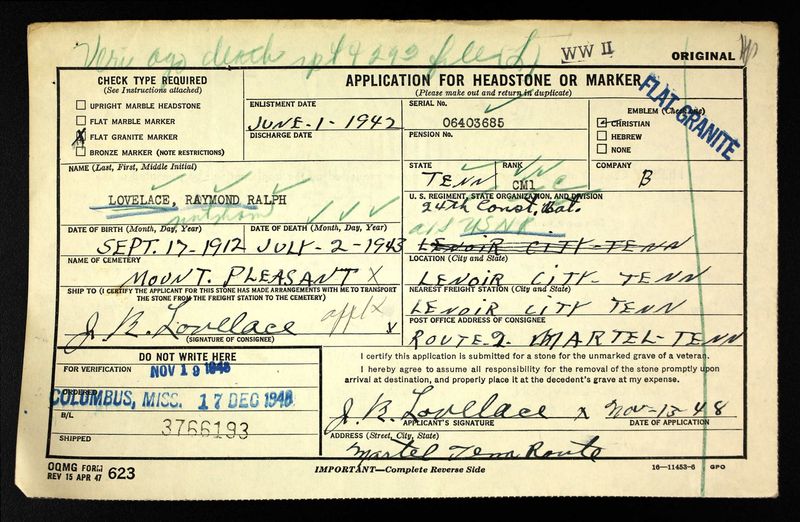 Very ago death
WW II
ORIGINAL
CHECK TYPE REQUIRED
(See Instructions attached)
UPRIGHT MARBLE HEADSTONE
FLAT MARBLE MARKER
X FLAT GRANITE MARKER
BRONZE MARKER (NOTE RESTRICTIONS)
APPLICATION FOR HEADSTONE OR MARKER
(Please make out and return in duplicate)
FLAT GRANITE
ENLISTMENT DATE
JUNE-1-1942
DISCHARGE DATE
SERIAL No.
06403685
PENSION No.
EMBLEM (Check one)
CHRISTIAN
HEBREW
NONE
STATE
TENN
RANK
CM1
COMPANY
B
NAME (Last, First, Middle Initial)
LOVELACE, RAYMOND RALPH
U. S. REGIMENT, STATE ORGANIZATION, AND DIVISION
24th Const. Bat.
USNR
DATE OF BIRTH (Month, Day, Year)
SEPT. 17-1912
DATE OF DEATH (Month, Day, Year)
JULY-2-1943
LENOIR CITY-TENN
NAME OF CEMETERY
MOUNT. PLEASANT X
LOCATION (City and State)
LENOIR CITY- TENN
SHIP TO (I CERTIFY THE APPLICANT FOR THIS STONE HAS MADE ARRANGEMENTS WITH ME TO TRANSPORT
THE STONE FROM THE FREIGHT STATION TO THE CEMETERY)
NEAREST FREIGHT STATION (City and State)
LENOIR CITY TENN
J. R. Lovelace applx x
(SIGNATURE OF CONSIGNEE)
POST OFFICE ADDRESS OF CONSIGNEE
ROUTE-2- MARTEL-TENN
DO NOT WRITE HERE
FOR VERIFICATION
NOV 19 1948
ORDERED
COLUMBUS, MISS. 17 DEC 1948
B/L
3766193
SHIPPED
I certify this application is submitted for a stone for the unmarked grave of a veteran.
I hereby agree to assume all responsibility for the removal of the stone promptly upon
arrival at destination, and properly place it at the decedent's grave at my expense.
J. R. Lovelace x Nov-15-48
APPLICANT'S SIGNATURE
DATE OF APPLICATION
ADDRESS (Street, City, State)
Martel Tenn Route
OQMG FORM
REV 15 APR 47 623
IMPORTANT—Complete Reverse Side
16—11453-6 GPO